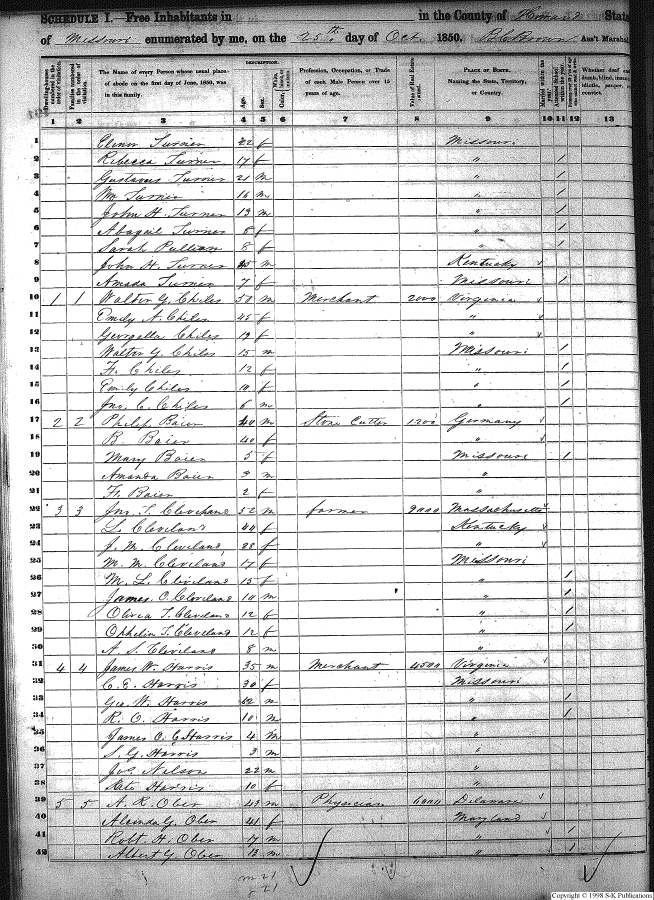 SCHEDULE I.—Free Inhabitants in in the County of Howard State
of Missouri enumerated by me, on the 25th day of Oct 1850. Ass't Marshal
Dwelling-houses numbered in the order of visitation.
Families numbered in the order of visitation.
The Name of every Person whose usual place of abode on the first day of June, 1850, was in this family.
DESCRIPTION.
Age.
Sex.
Color,
Profession, Occupation, or Trade of each Male Person over 15 years of age.
Value of Real Estate owned.
PLACE OF BIRTH. Naming the State, Territory, or Country.
Married within the year.
Attended School within the year.
Whether deaf and dumb, blind, insane, idiotic, pauper, or convict.
1 2 3 4 5 6 7 8 9 10 11 12 13
1 Turner 22 f Missouri
2 Rebecca Turner 17 f " /
3 Gustavus Turner 21 m " /
4 Wm Turner 16 m " /
5 John H. Turner 13 m " /
6 Abagail Turner 8 f " /
7 Sarah Pulliam 8 f " /
8 John H. Turner 45 m Kentucky
9 Amada Turner 7 f Missouri /
10 1 1 Walter G. Chiles 50 m Merchant 2000 Virginia
11 Emily A. Chiles 45 f "
12 Georgella Chiles 19 f "
13 Walter G. Chiles 15 m Missouri /
14 H. Chiles 12 f " /
15 Emily Chiles f " /
16 Jno. C. Chiles 6 m " /
17 2 2 Philip Baier 40 m Stone Cutter 1200 Germany
18 B. Baier 40 f "
19 Mary Baier 5 f Missouri /
20 Amanda Baier 3 m "
21 H. Baier 2 f "
22 3 3 Jno. T. Cleveland 52 m farmer 9000 Massachusetts
23 L. Cleveland 44 f Kentucky
24 J. M. Cleveland 28 f "
25 M. M. Cleveland 17 f Missouri
26 M. L. Cleveland 15 f " /
27 James O. Cleveland 14 m " /
28 Olivia T. Cleveland 12 f " /
29 Ophelia T. Cleveland 12 f " /
30 A. S. Cleveland 8 m "
31 4 4 James W. Harris 35 m Merchant 4500 Virginia
32 C. E. Harris 30 f Missouri
33 Geo. W. Harris 12 m " /
34 R. O. Harris 10 m " /
35 James O. C. Harris 4 m "
36 S. G. Harris 3 m "
37 Jos. Nelson 22 m "
38 Kate Harris 10 f "
39 5 5 A. R. Ober 43 m Physician 6000 Delaware
40 Alcinda G. Ober 41 f Maryland
41 Robt. H. Ober 17 m " /
42 Albert G. Ober 13 m " /
m 21
21
Copyright © 1998 S-K Publications